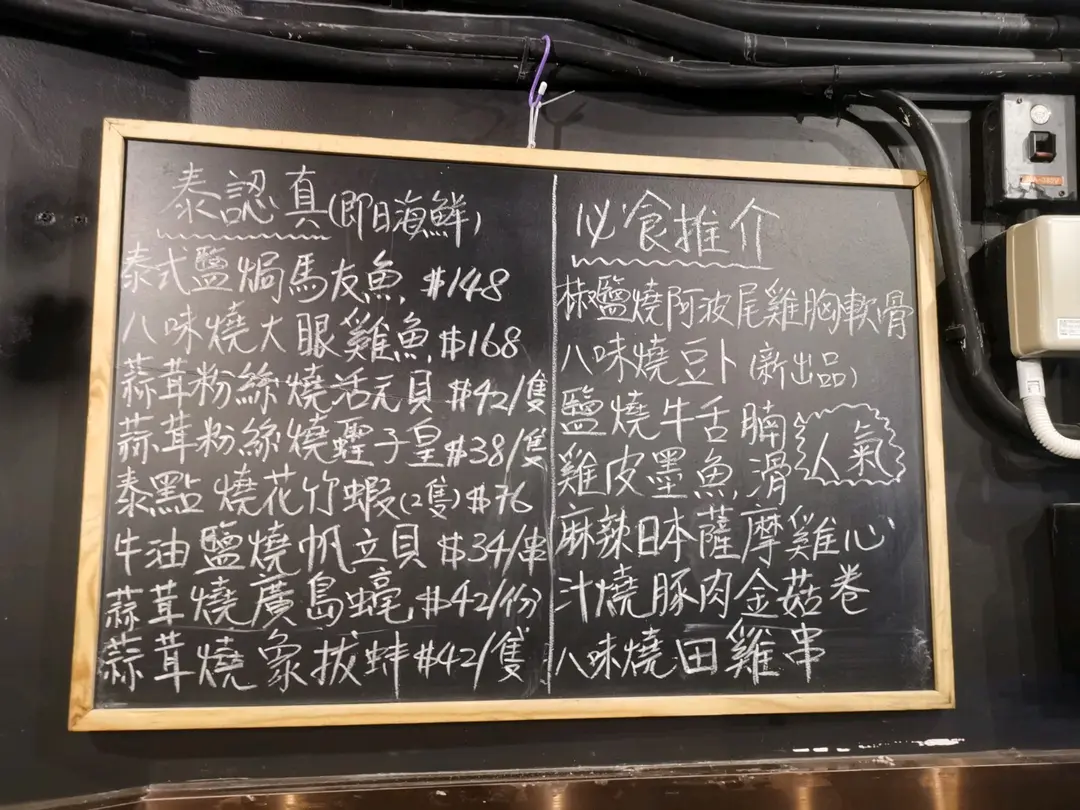 泰認真(即日海鮮)
泰式鹽焗馬友魚 $148
八味燒大眼雞魚 $168
蒜茸粉絲燒活元貝 $42/隻
蒜茸粉絲燒蟶子皇 $38/隻
泰點燒花竹蝦(2隻) $76
牛油鹽燒帆立貝 $34/串
蒜茸燒廣島蠔 $42/份
蒜茸燒象拔蚌 $42/隻
必食推介
椒鹽燒阿波尾雞胸軟骨
八味燒豆卜(新出品)
鹽燒牛舌腩
雞皮墨魚滑
人氣
麻辣日本薩摩雞心
汁燒豚肉金菇卷
八味燒田雞串